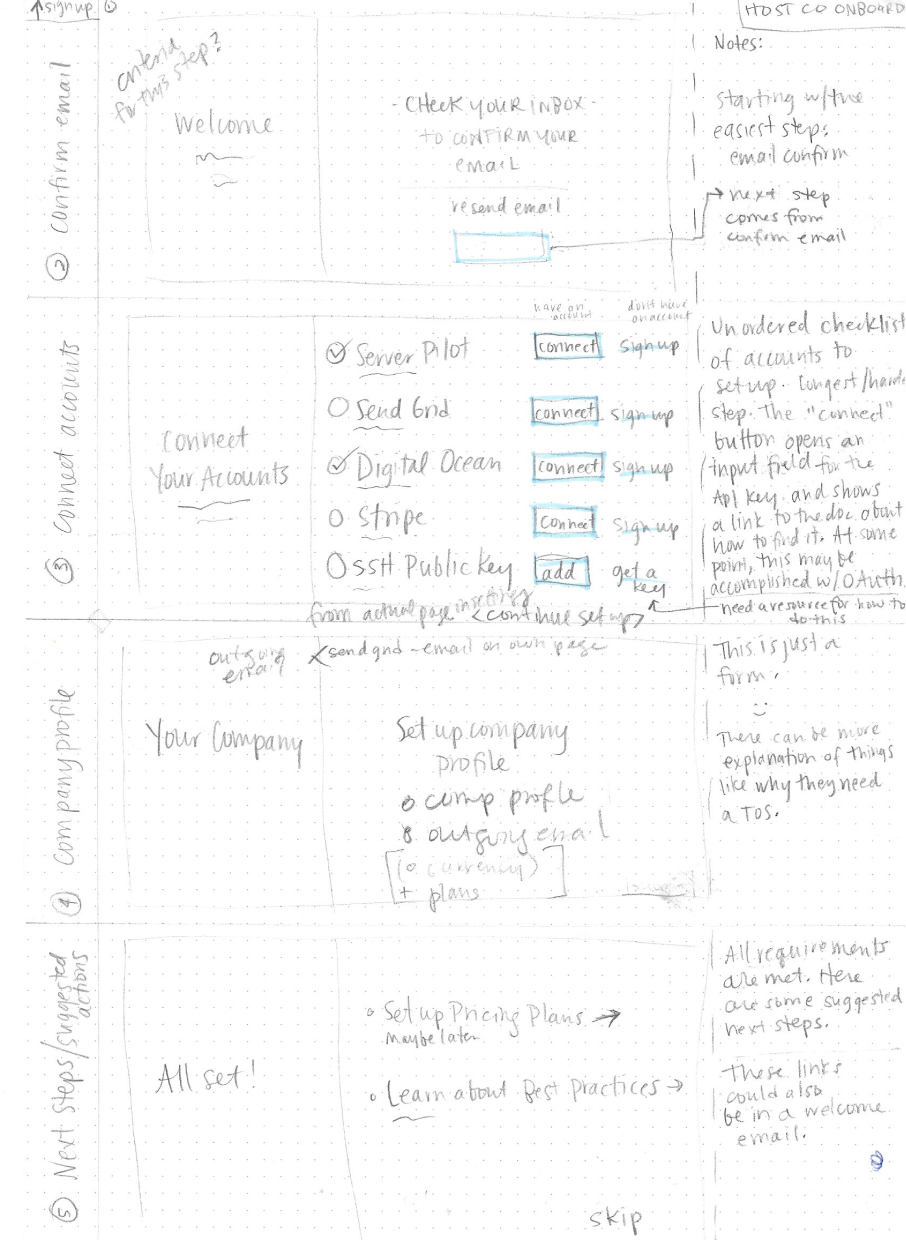 ↑ sign up ①
HOST CO ONBOARD
② Confirm email
criteria
for this step?
Welcome
- CHECK YOUR INBOX -
TO CONFIRM YOUR
EMAIL
resend email
Notes:
starting w/the
easiest steps:
email confirm
→ next step
comes from
confirm email
③ Connect accounts
Connect
Your Accounts
have an
account
don't have
an account
Server Pilot
connect
sign up
Send Grid
connect
sign up
Digital Ocean
connect
sign up
Stripe
connect
sign up
SSH Public Key
add
get a
key
from actual page in settings
<continue set up>
Unordered checklist
of accounts to
set up. Longest/harde
step. The "connect"
button opens an
input field for the
API key and shows
a link to the doc about
how to find it. At some
point, this may be
accomplished w/OAuth.
need a resource for how to
do this
④ Company profile
outgoing
email
sendgrid - email on own page
Your Company
Set up company
profile
o comp profile
o outgoing email
(o currency)
+ plans
This is just a
form.
There can be more
explanation of things
like why they need
a TOS.
⑤ Next Steps/suggested
actions
All set!
Set up Pricing Plans →
Maybe later
Learn about Best Practices →
skip
All requirements
are met. Here
are some suggested
next steps.
These links
could also
be in a welcome
email.